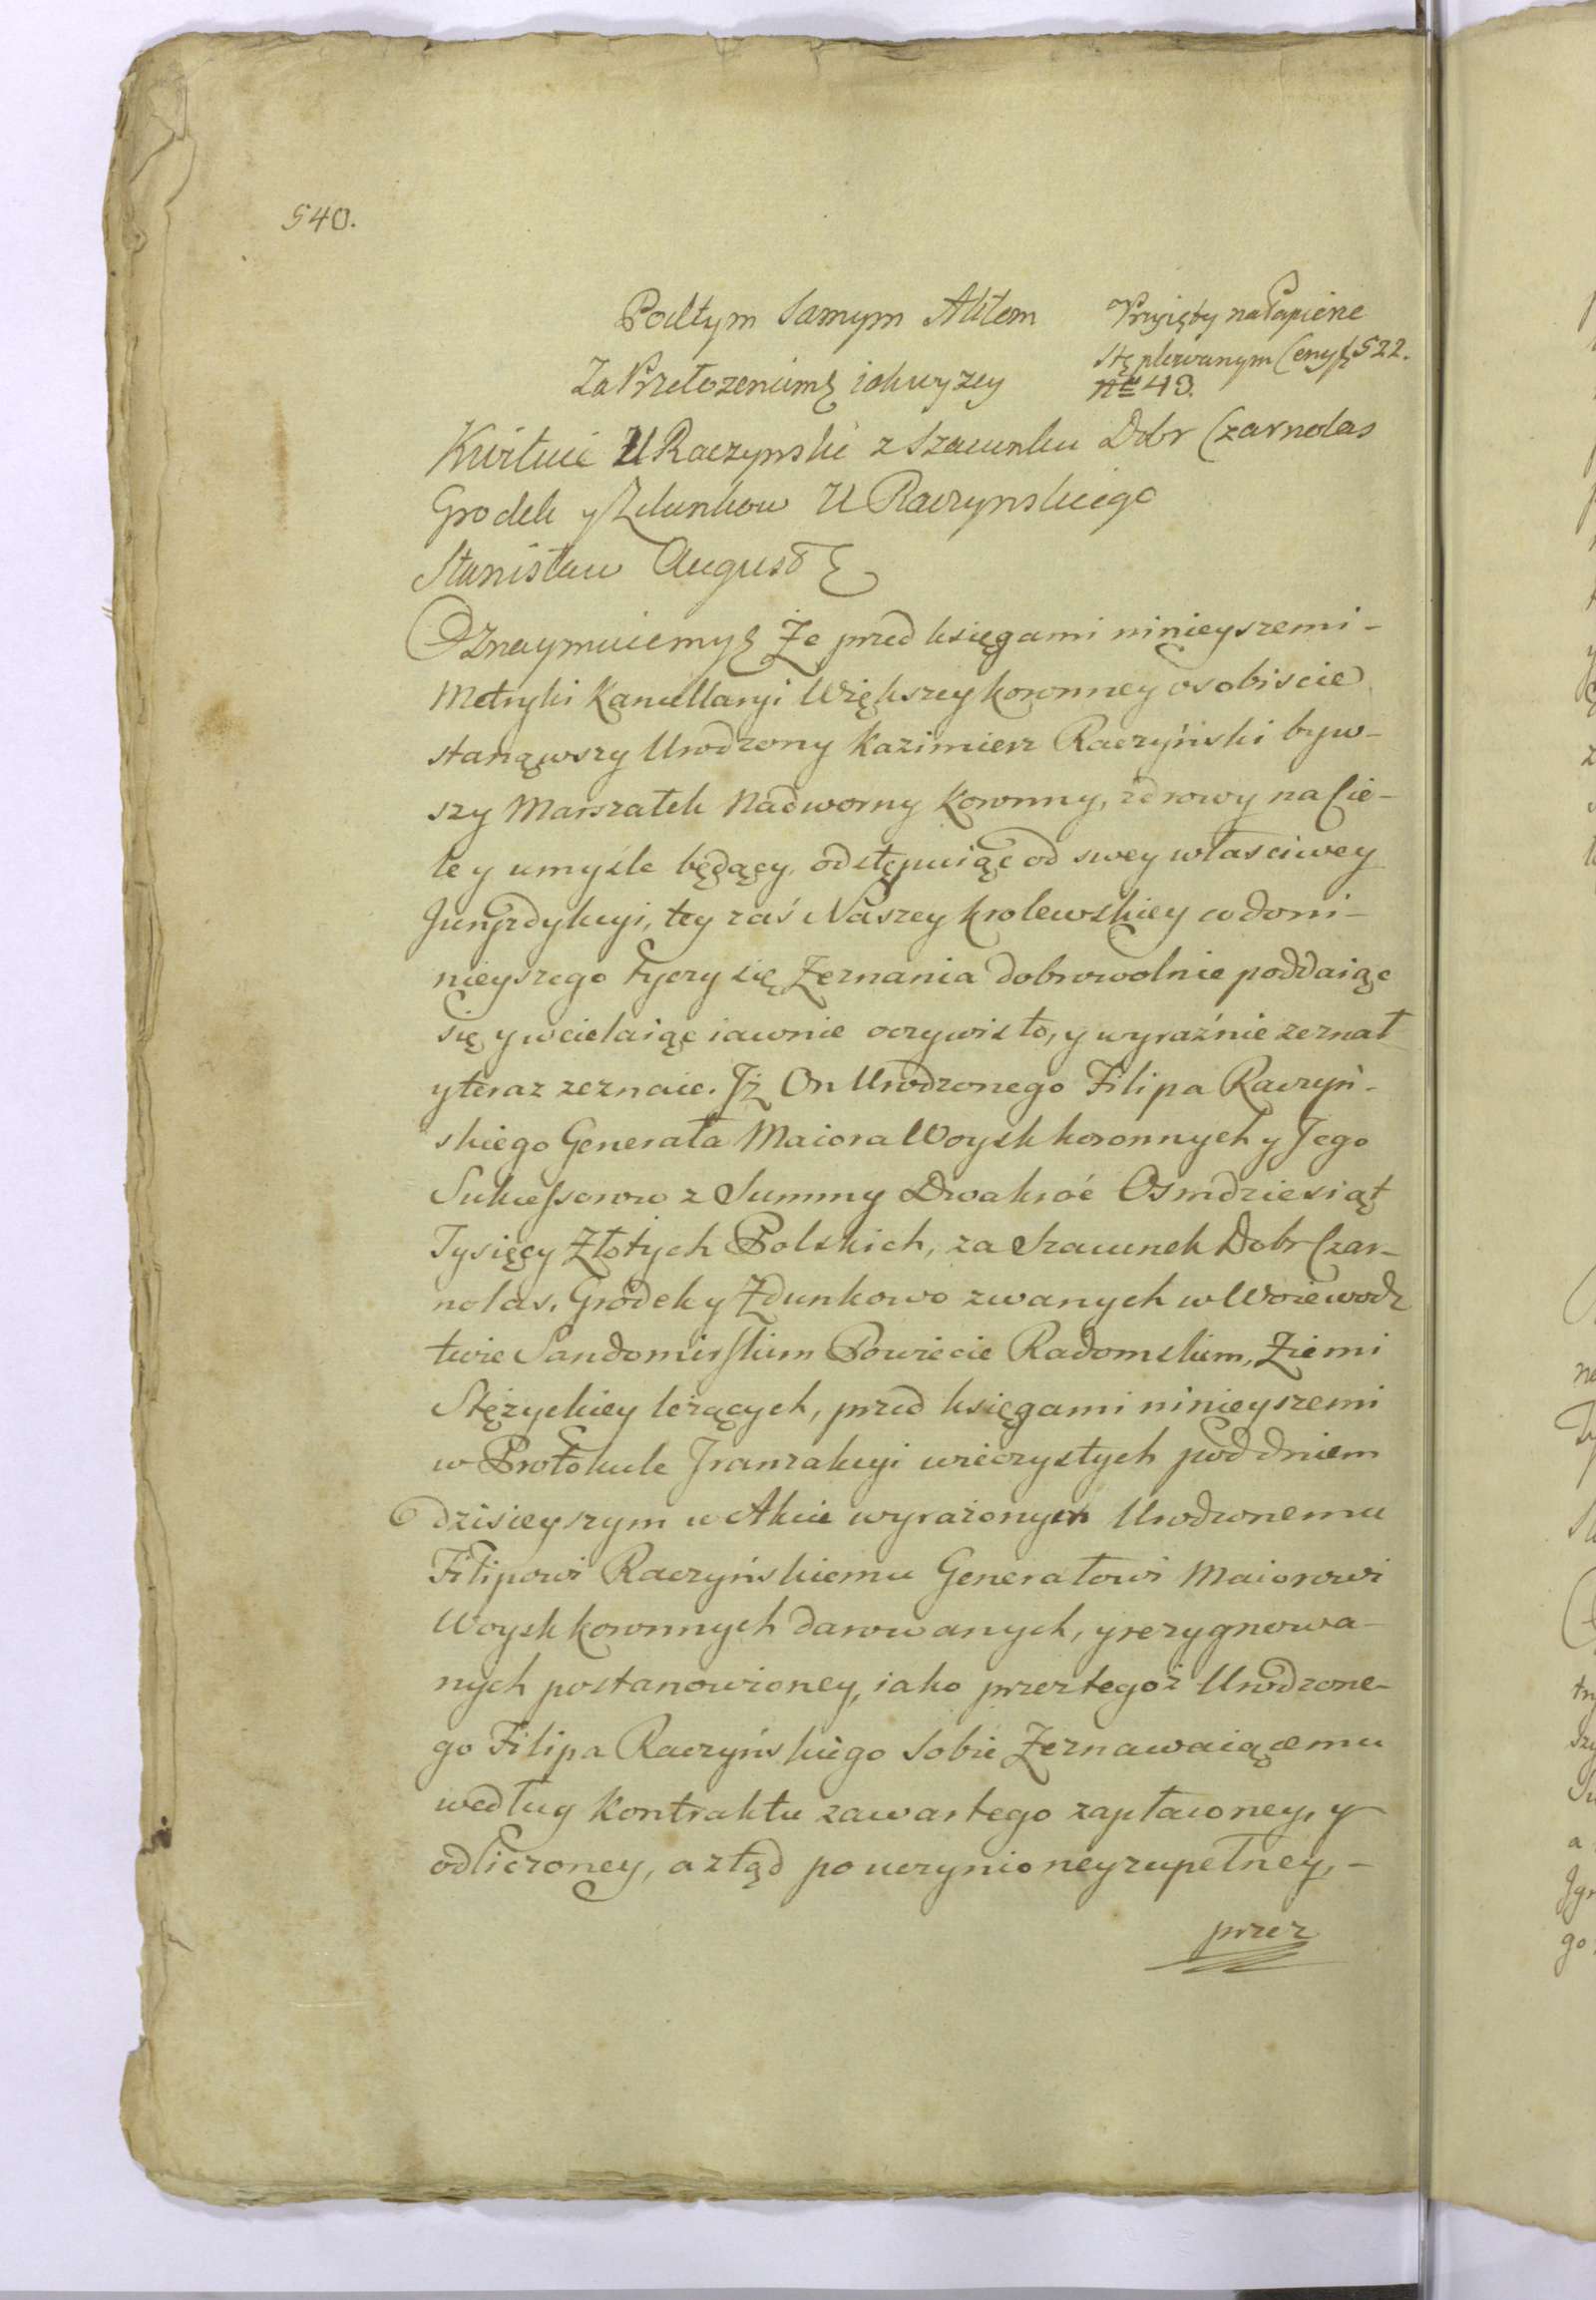 540.
Podtym Samym Aktem
Przyięty na Papierze
Stęplowanym Ceny 522.
Nr 43.
Za Przełozeniem iakwyzey
Kwituie U Raczynski z Szacunku Dobr Czarnolas
Grodek y Zdunkow U Raczynskiego
Stanisław August
Oznaymuiemy Że przed księgami ninieyszemi -
Metryki Kancellaryi Większey koronney osobiscie
stanąwszy Urodzony Kazimierz Raczyński byw-
szy Marszałek Nadworny Koronny, zdrowy na Cie-
le y umyśle będący, odstępuiąc od swey własciwey
Juryzdykcyi, tey zaś Naszey krolewskiey co do ni-
nieyszego tyczy się Zeznania dobrowolnie poddaiąc
się y wcielaiąc iawnie oczywisto, y wyraźnie zeznał
y teraz zeznaie. Jż On Urodzonego Filipa Raczyń-
skiego Generała Maiora Woysk koronnych y Jego
Sukcessorow z Summy Dwakroć Osmdziesiąt
Tysięcy Złotych Polskich, za Szacunek Dobr Czar-
nolas, Gródek y Zdunkowo zwanych w Woiewodz
twie Sandomirskim Powiecie Radomskim, Ziemi
Stężyckiey leżących, przed księgami ninieyszemi
w Protokule Tranzakcyi wieczystych pod dniem
dzisieyszym w Akcie wyrażonych Urodzonemu
Filipowi Raczyńskiemu Generałowi Maiorowi
Woysk koronnych darowanych, y rezygnowa-
nych postanowioney, iako przez tegoż Urodzone-
go Filipa Raczyńskiego Sobie Zeznawaiącemu
według Kontraktu zawartego zapłaconey, y
odliczoney, a ztąd po uczynioney zupełney, -
przez